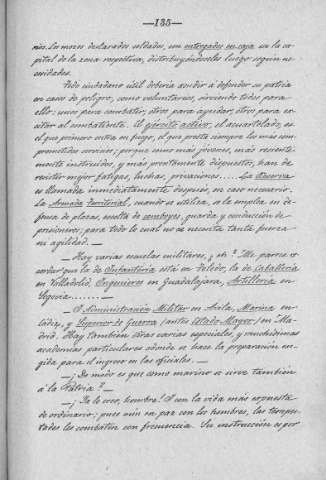 —135—
nios. Los mozos declarados soldados, son entregados en caja en la ca-
pital de la zona respectiva, distribuyéndoseles luego según ne-
cesidades.
Todo ciudadano útil debería acudir á defender su patria
en casos de peligro, como voluntarios, sirviendo todos para
ello: unos para combatir, otros para ayudar, otros para ex-
citar al combatiente. El ejército activo, el acuartelado, es
el que primero entra en fuego, el que presta siempre los más com-
prometidos servicios; porque como más jóvenes, más reciente-
mente instruidos, y más prontamente dispuestos, han de
resistir mejor fatigas, luchas, privaciones..... La Reserva
es llamada inmediatamente después, en caso necesario.
La Armada territorial, cuando se utiliza, se la emplea en de-
fensa de plazas, escolta de convoyes, guarda y conducción de
prisioneros; para todo lo cual no se necesita tanta fuerza
ni agilidad. —
— Hay varias escuelas militares, ¿ eh? Me parece re-
cordar que la de Infantería está en Toledo, la de Caballería
en Valladolid, Ingenieros en Guadalajara, Artillería en
Segovia........ —
— Y Administración Militar en Avila, Marina en
Cádiz, y Superior de Guerra (antes Estado-Mayor) en Ma-
drid. Hay también otras varias especiales, y muchísimas
academias particulares donde se hace la preparación exi-
gida para el ingreso en las oficiales. —
— ¿De modo es que como marino se sirve también
á la Patria? —
— ¡Ya lo creo, hombre! Y con la vida más expuesta
de ordinario; pues aún en paz con los hombres, las tempes-
tades los combaten con frecuencia. Su instrucción es por